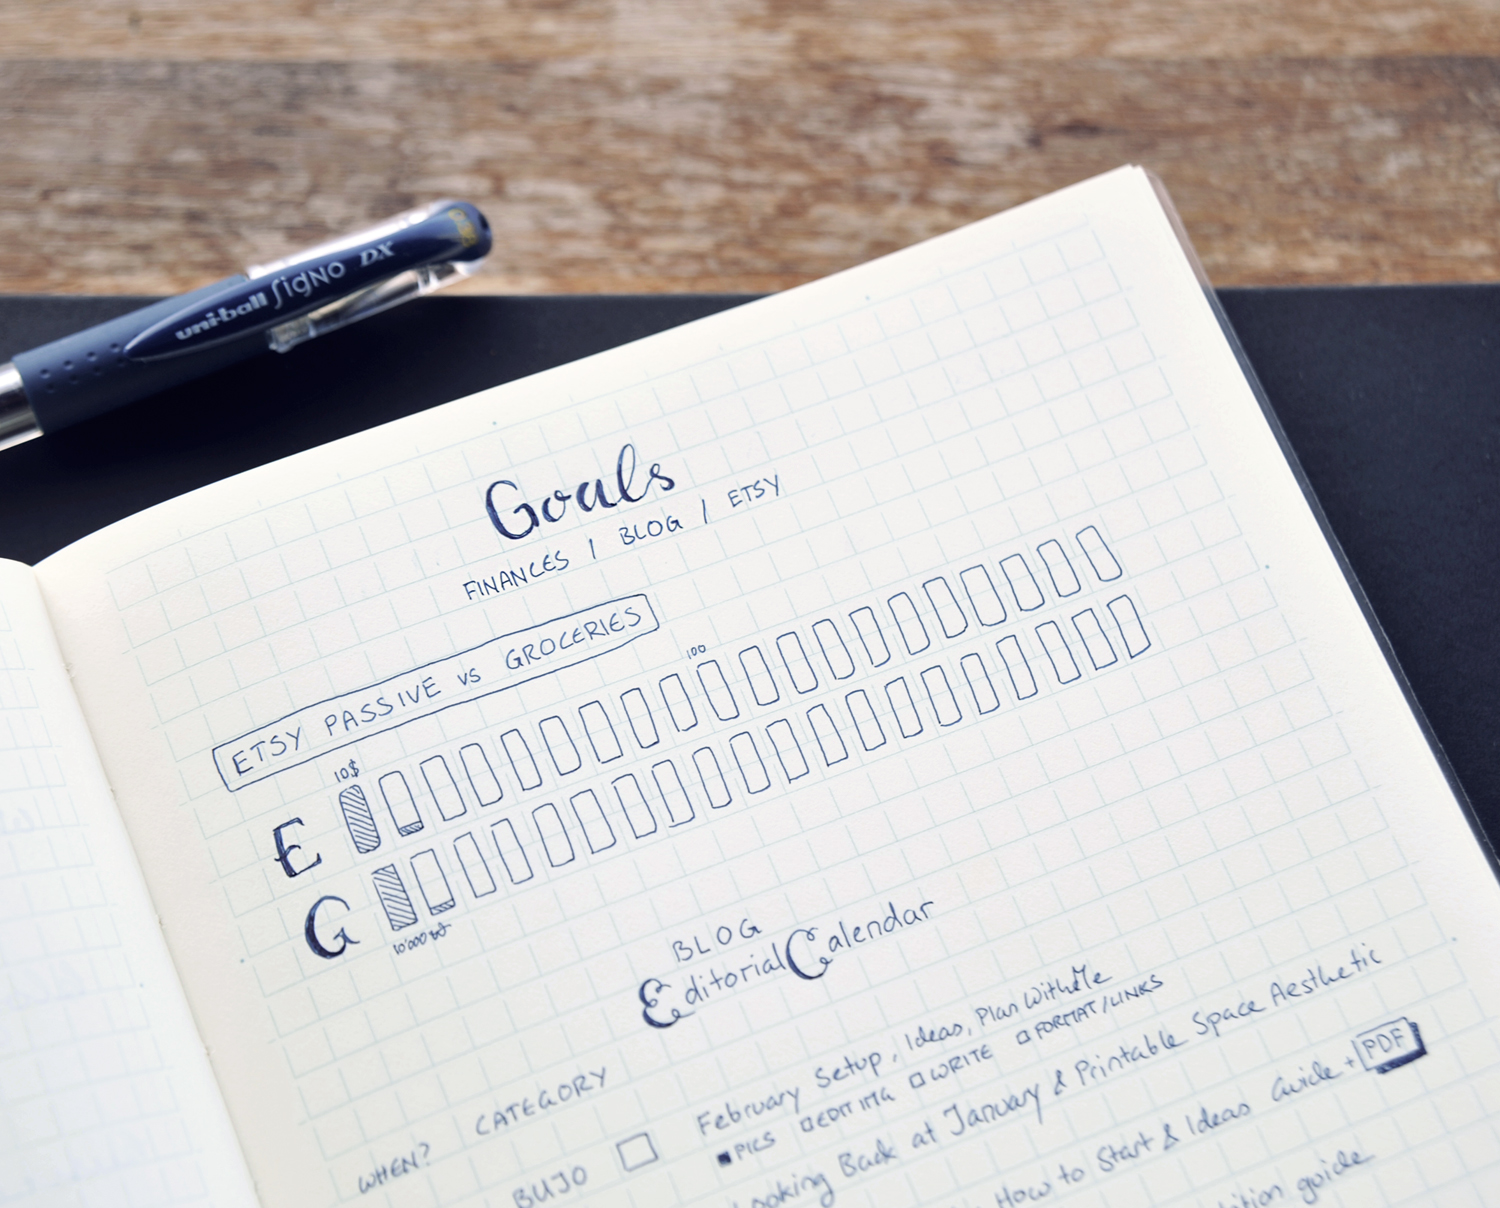 uni-ball SIGNO DX
Goals
FINANCES / BLOG / ETSY
ETSY PASSIVE vs GROCERIES
10$
100
E
G
BLOG
Editorial Calendar
WHEN? CATEGORY
February Setup, Ideas, Plan With Me
PICS EDITING WRITE FORMAT/LINKS
BUJO
Looking Back at January & Printable Space Aesthetic
How to Start & Ideas Guide + PDF
guide